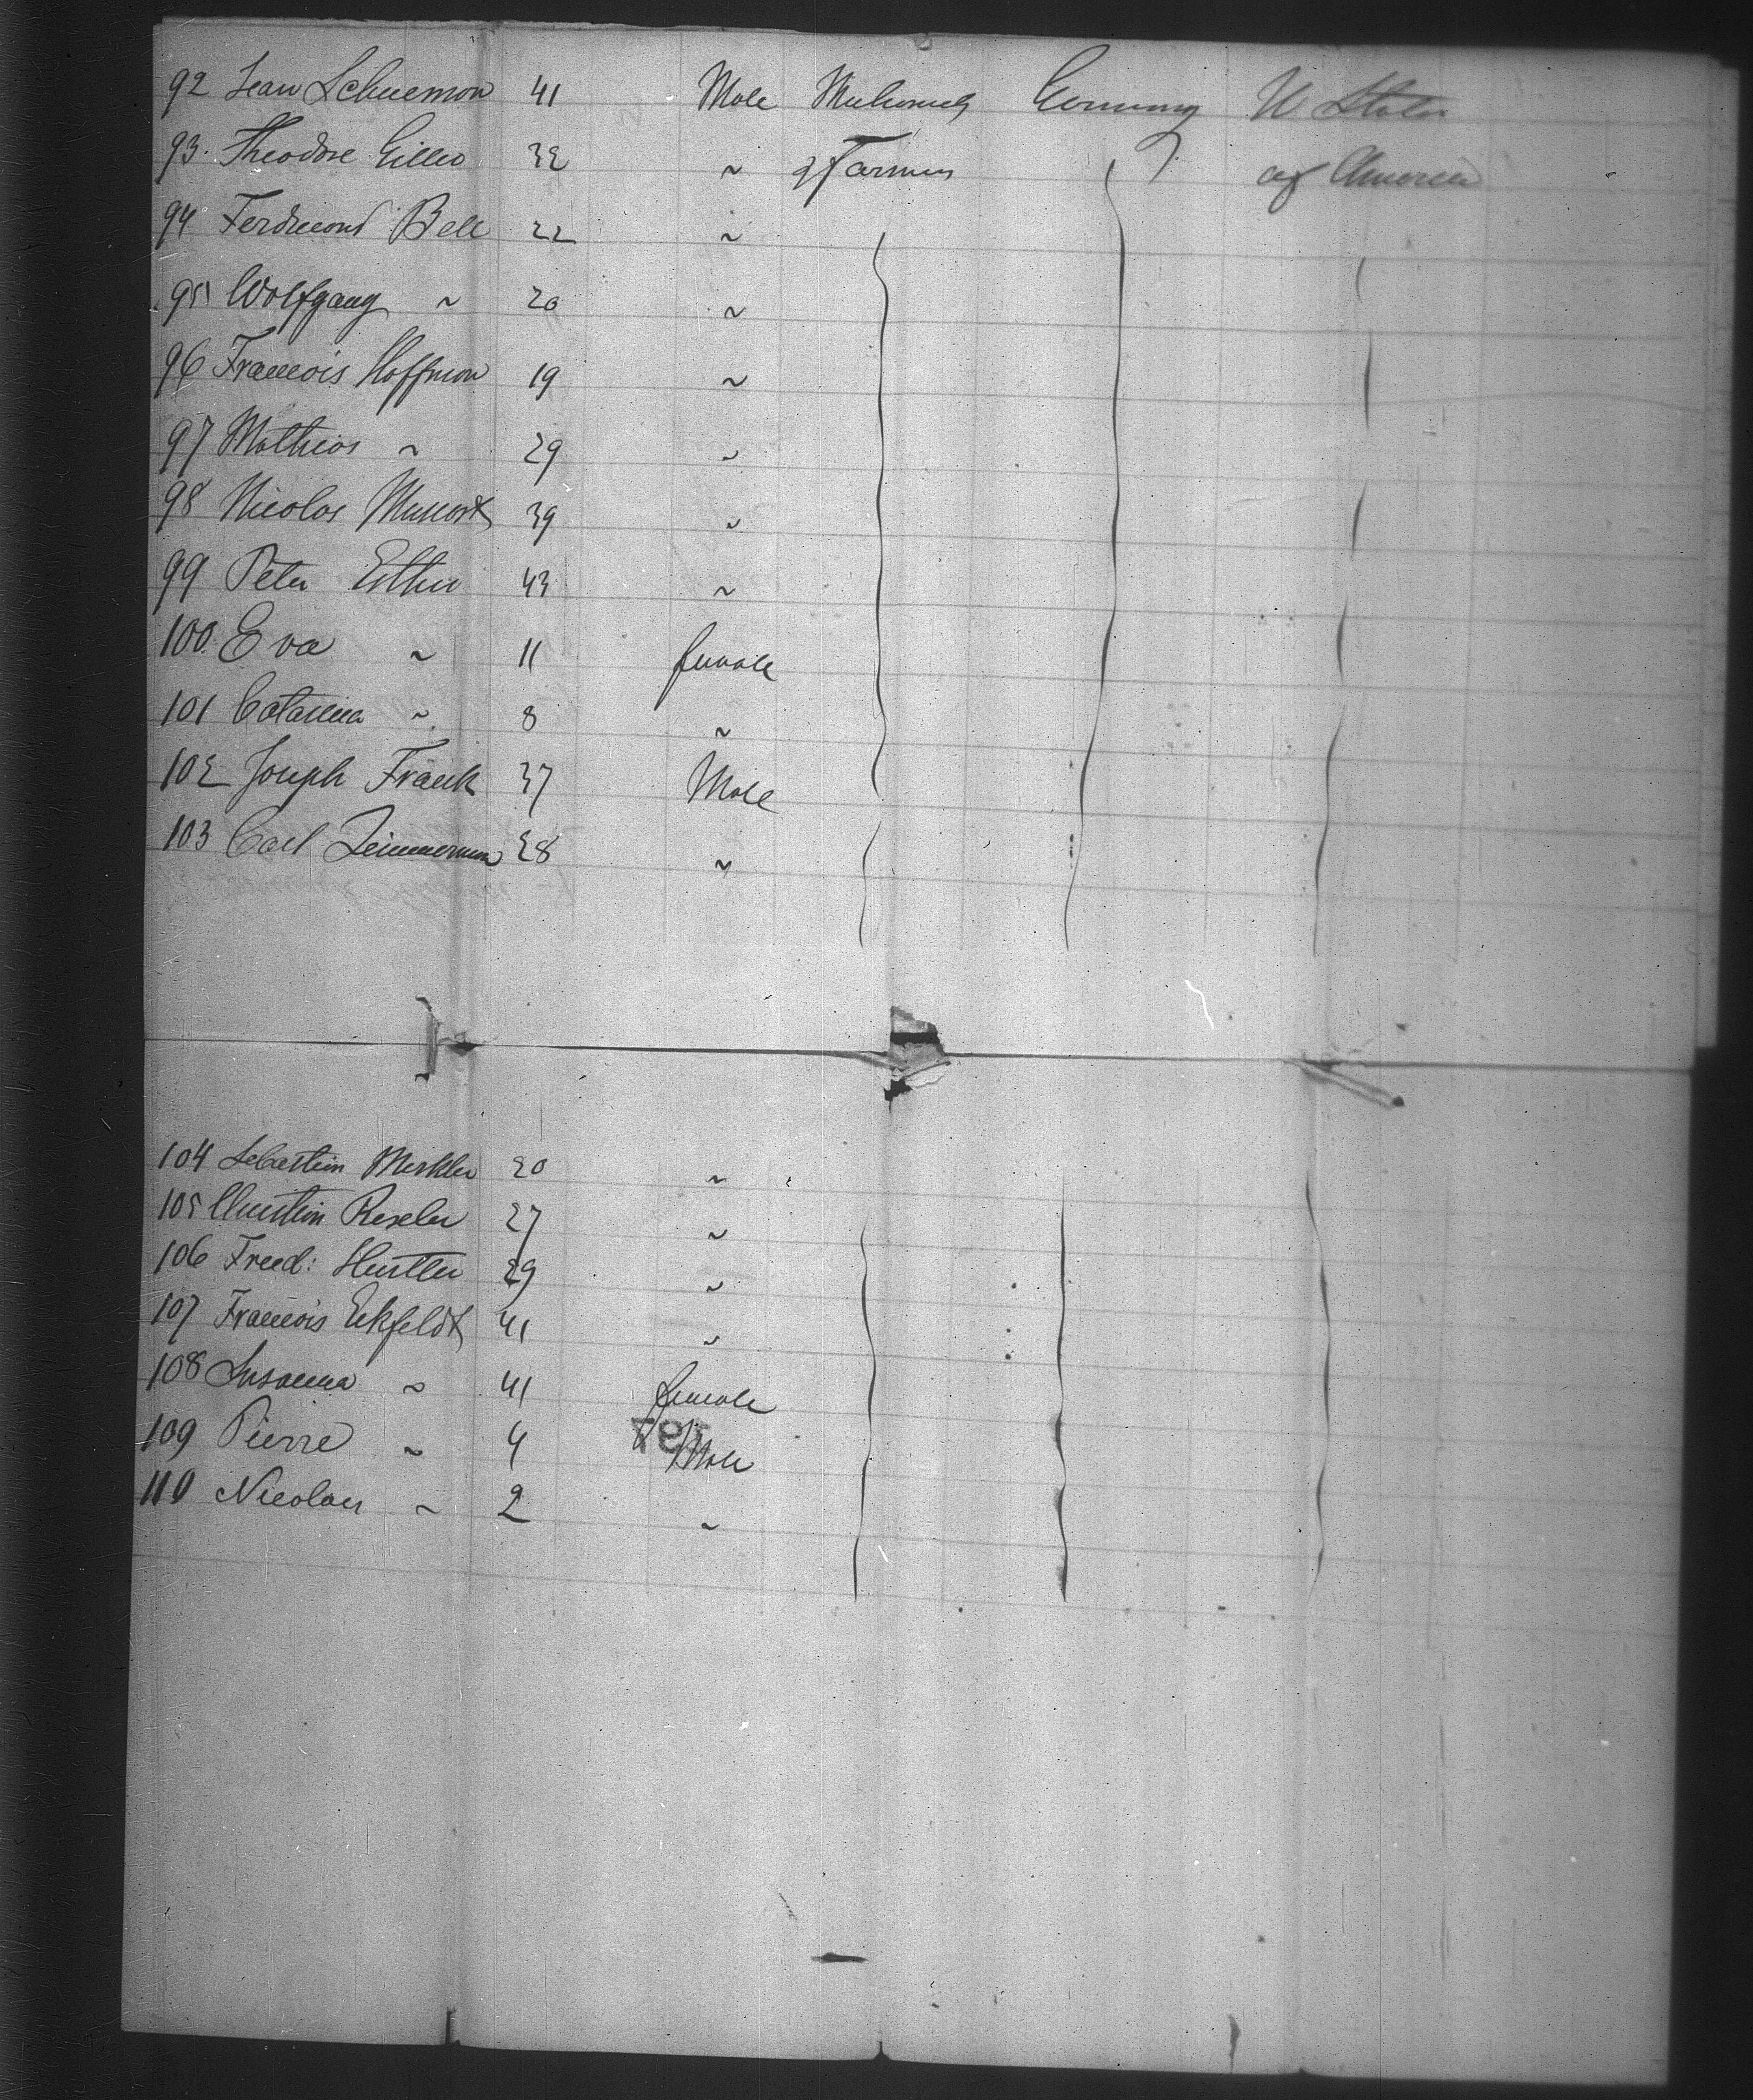 92 Jean Schueman 41 Male Mechanick Germany U States
93. Theodore Gilles 32 ~ Farmers of America
94 Ferdinand Bell 22 ~
95 Wolfgang ~ 20 ~
96 Francois Hoffman 19 ~
97 Mathias ~ 29 ~
98 Nicolas 39 ~
99 Peter 43 ~
100. Eva ~ 11 female
101 Catarina ~ 8 ~
102 Joseph Frank 37 Male
103 Carl Zimmerman 28 ~
104 Sebastian Merkler 20 ~
105 Christian Rexler 27 ~
106 Fried: 29 ~
107 Francois Eckfeldt 41 ~
108 Susanna ~ 41 female
109 Pierre ~ 4 Male
110 Nicolaus ~ 2 ~